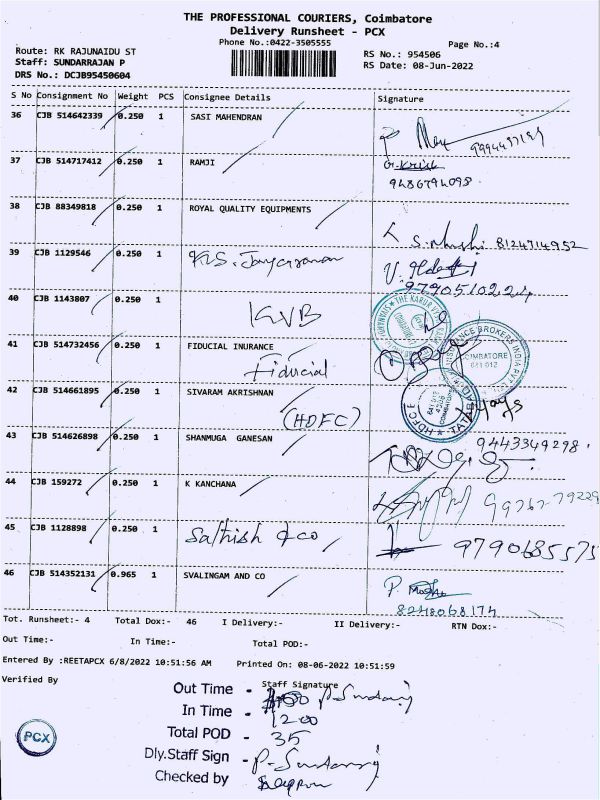 THE PROFESSIONAL COURIERS, Coimbatore
Delivery Runsheet - PCX
Phone No.:0422-3505555
Page No.:4
Route: RK RAJUNAIDU ST
Staff: SUNDARRAJAN P
DRS No.: DCJB95450604
RS No.: 954506
RS Date: 08-Jun-2022
S No Consignment No Weight PCS Consignee Details Signature
36 CJB 514642339 0.250 1 SASI MAHENDRAN
37 CJB 514717412 0.250 1 RAMJI
9486794098
38 CJB 88349818 0.250 1 ROYAL QUALITY EQUIPMENTS
8124714952
39 CJB 1129546 0.250 1 K.S. Jayaraman
9790510224
40 CJB 1143807 0.250 1 KVB
41 CJB 514732456 0.250 1 FIDUCIAL INURANCE
Fiducial
COIMBATORE
641 012
42 CJB 514661895 0.250 1 SIVARAM AKRISHNAN
(HDFC)
43 CJB 514626898 0.250 1 SHANMUGA GANESAN
9443349298
44 CJB 159272 0.250 1 K KANCHANA
45 CJB 1128898 0.250 1 Sathish & co
9790685575
46 CJB 514352131 0.965 1 SVALINGAM AND CO
8248068174
Tot. Runsheet:- 4 Total Dox:- 46 I Delivery:- II Delivery:- RTN Dox:-
Out Time:- In Time:- Total POD:-
Entered By :REETAPCX 6/8/2022 10:51:56 AM Printed On: 08-06-2022 10:51:59
Verified By Staff Signature
Out Time -
In Time - 1200
Total POD - 35
Dly.Staff Sign - P-Sundarraj
Checked by
PCX